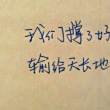 我们撑了好
输给天长地